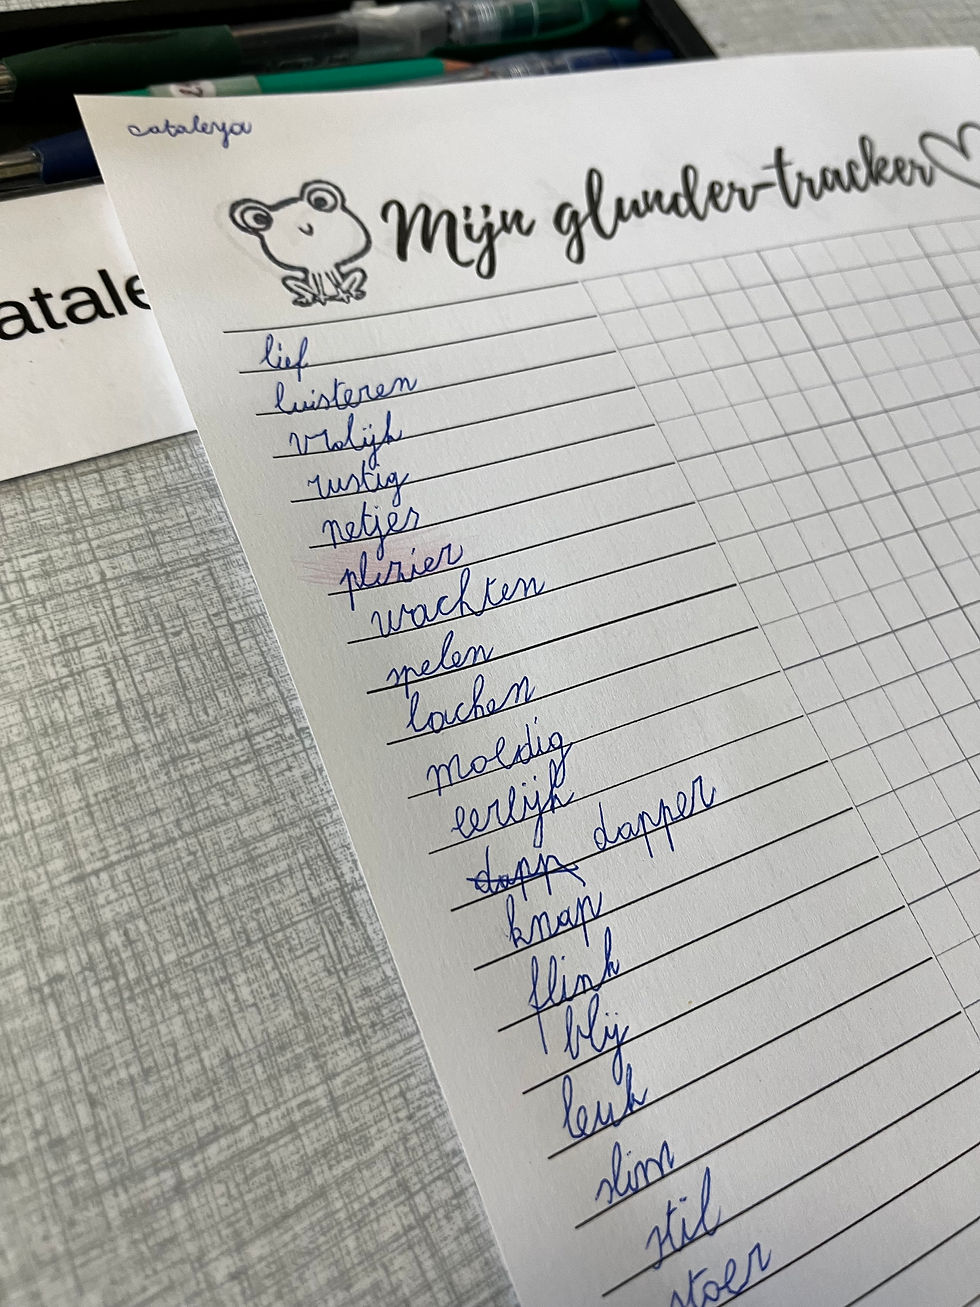 cataleya
Mijn glunder-tracker
atale
lief
luisteren
vrolijk
rustig
netjes
plezier
wachten
spelen
lachen
moldig
eerlijk
dapp dapper
knap
flink
blij
leuk
slim
stil
stoer